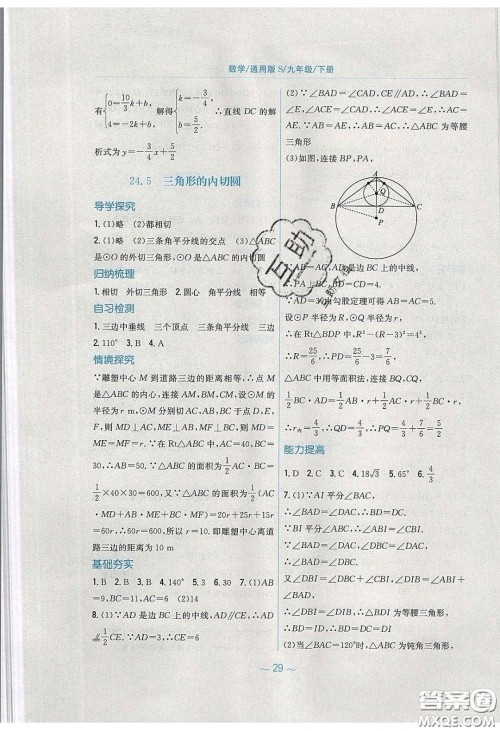 数学/通用版 S/九年级/下册
有{0=10/3k+b, 4=-2k+b, 解得{k=-3/4, b=5/2. ∴直线 DC 的解
析式为 y=-3/4x+5/2
24.5 三角形的内切圆
导学探究
1.(1)略 (2)都相切
2.(1)略 (2)三条角平分线的交点 (3)△ABC
是⊙O 的外切三角形,⊙O 是△ABC 的内切圆
归纳梳理
1.相切 外切三角形 2.圆心 角平分线 相等
自习检测
1.三边中垂线 三个顶点 三条角平分线 三边
2.110° 3.B 4.A
情境探究
∵雕塑中心 M 到道路三边的距离相等,∴点 M
是△ABC 的内心,连接 AM,BM,CM,设⊙M
的半径为 r m,⊙M 分别切 AC,AB,BC 于点 D,E,
F,则 MD⊥AC,ME⊥AB,MF⊥BC,∴MD=
ME=MF=r. ∵在 Rt△ABC 中,AC=40,BC=
30,∴AB=50,∴△ABC 的面积为1/2AC·BC=
1/2×40×30=600,又∵△ABC 的面积为1/2(AC
·MD+AB·ME+BC·MF)=20r+25r+15r
=60r,∴60r=600,∴r=10.即雕塑中心离道
路三边的距离为 10 m
基础夯实
1.B 2.B 3.B 4.140° 5.3 6.30 7.(1)AB
=9,BC=11,AC=6 (2)14
8.(1)∵AD 是边 BC 上的中线,AD∥CE,∴AD
⫽1/2CE. ∵AD=3,∴CE=6
(2)∵∠BAD=∠CAD,CE∥AD,∴∠BAD=
∠E,∠ACE=∠CAD,∴∠ACE=∠E,∴AC=
AE. ∵AB=AE,∴AB=AC,∴△ABC 为等腰
三角形.
(3)如图,连接 BP,PA,
A
Q
B
D
C
P
∵AB=AC,AD是边 BC 上的中线,
∴PA⊥BC,BD=CD=4.
∵AD=3,由勾股定理可得 AB=AC=5.
设⊙P 半径为 R,⊙Q 半径为 r.
∴在 Rt△BDP 中,R²-(R-3)²=4²,
∴R=25/6,∴PD=PA-AD=25/6-3=7/6,
在△ABC 中用等面积法,连接 BQ,CQ,
∴1/2BC·AD=1/2AB·r+1/2AC·r+1/2BC·r,
∴r内=4/3,∴QD=4/3,∴PQ=4/3+7/6=5/2
能力提高
1.D 2.C 3.C 4.18√3 5.65° 6.4/3
7.(1)∵AI 平分∠BAC,
∴∠BAD=∠DAC,∴∠DBC=∠BAD.
∵BI 平分∠ABC,∴∠ABI=∠CBI.
∵∠BID=∠BAD+∠ABI,
∴∠BID=∠DAC+∠CBI.
又∵∠DBI=∠DBC+∠CBI,
∴∠DIB=∠DBI,∴DB=DI,
∴∠DIB=∠DBI,∴△BDI 为等腰三角形,
(2)当∠BAC=120°时,△ABC 为钝角三角形,
～29～
互助
答案圈
MXQE.COM